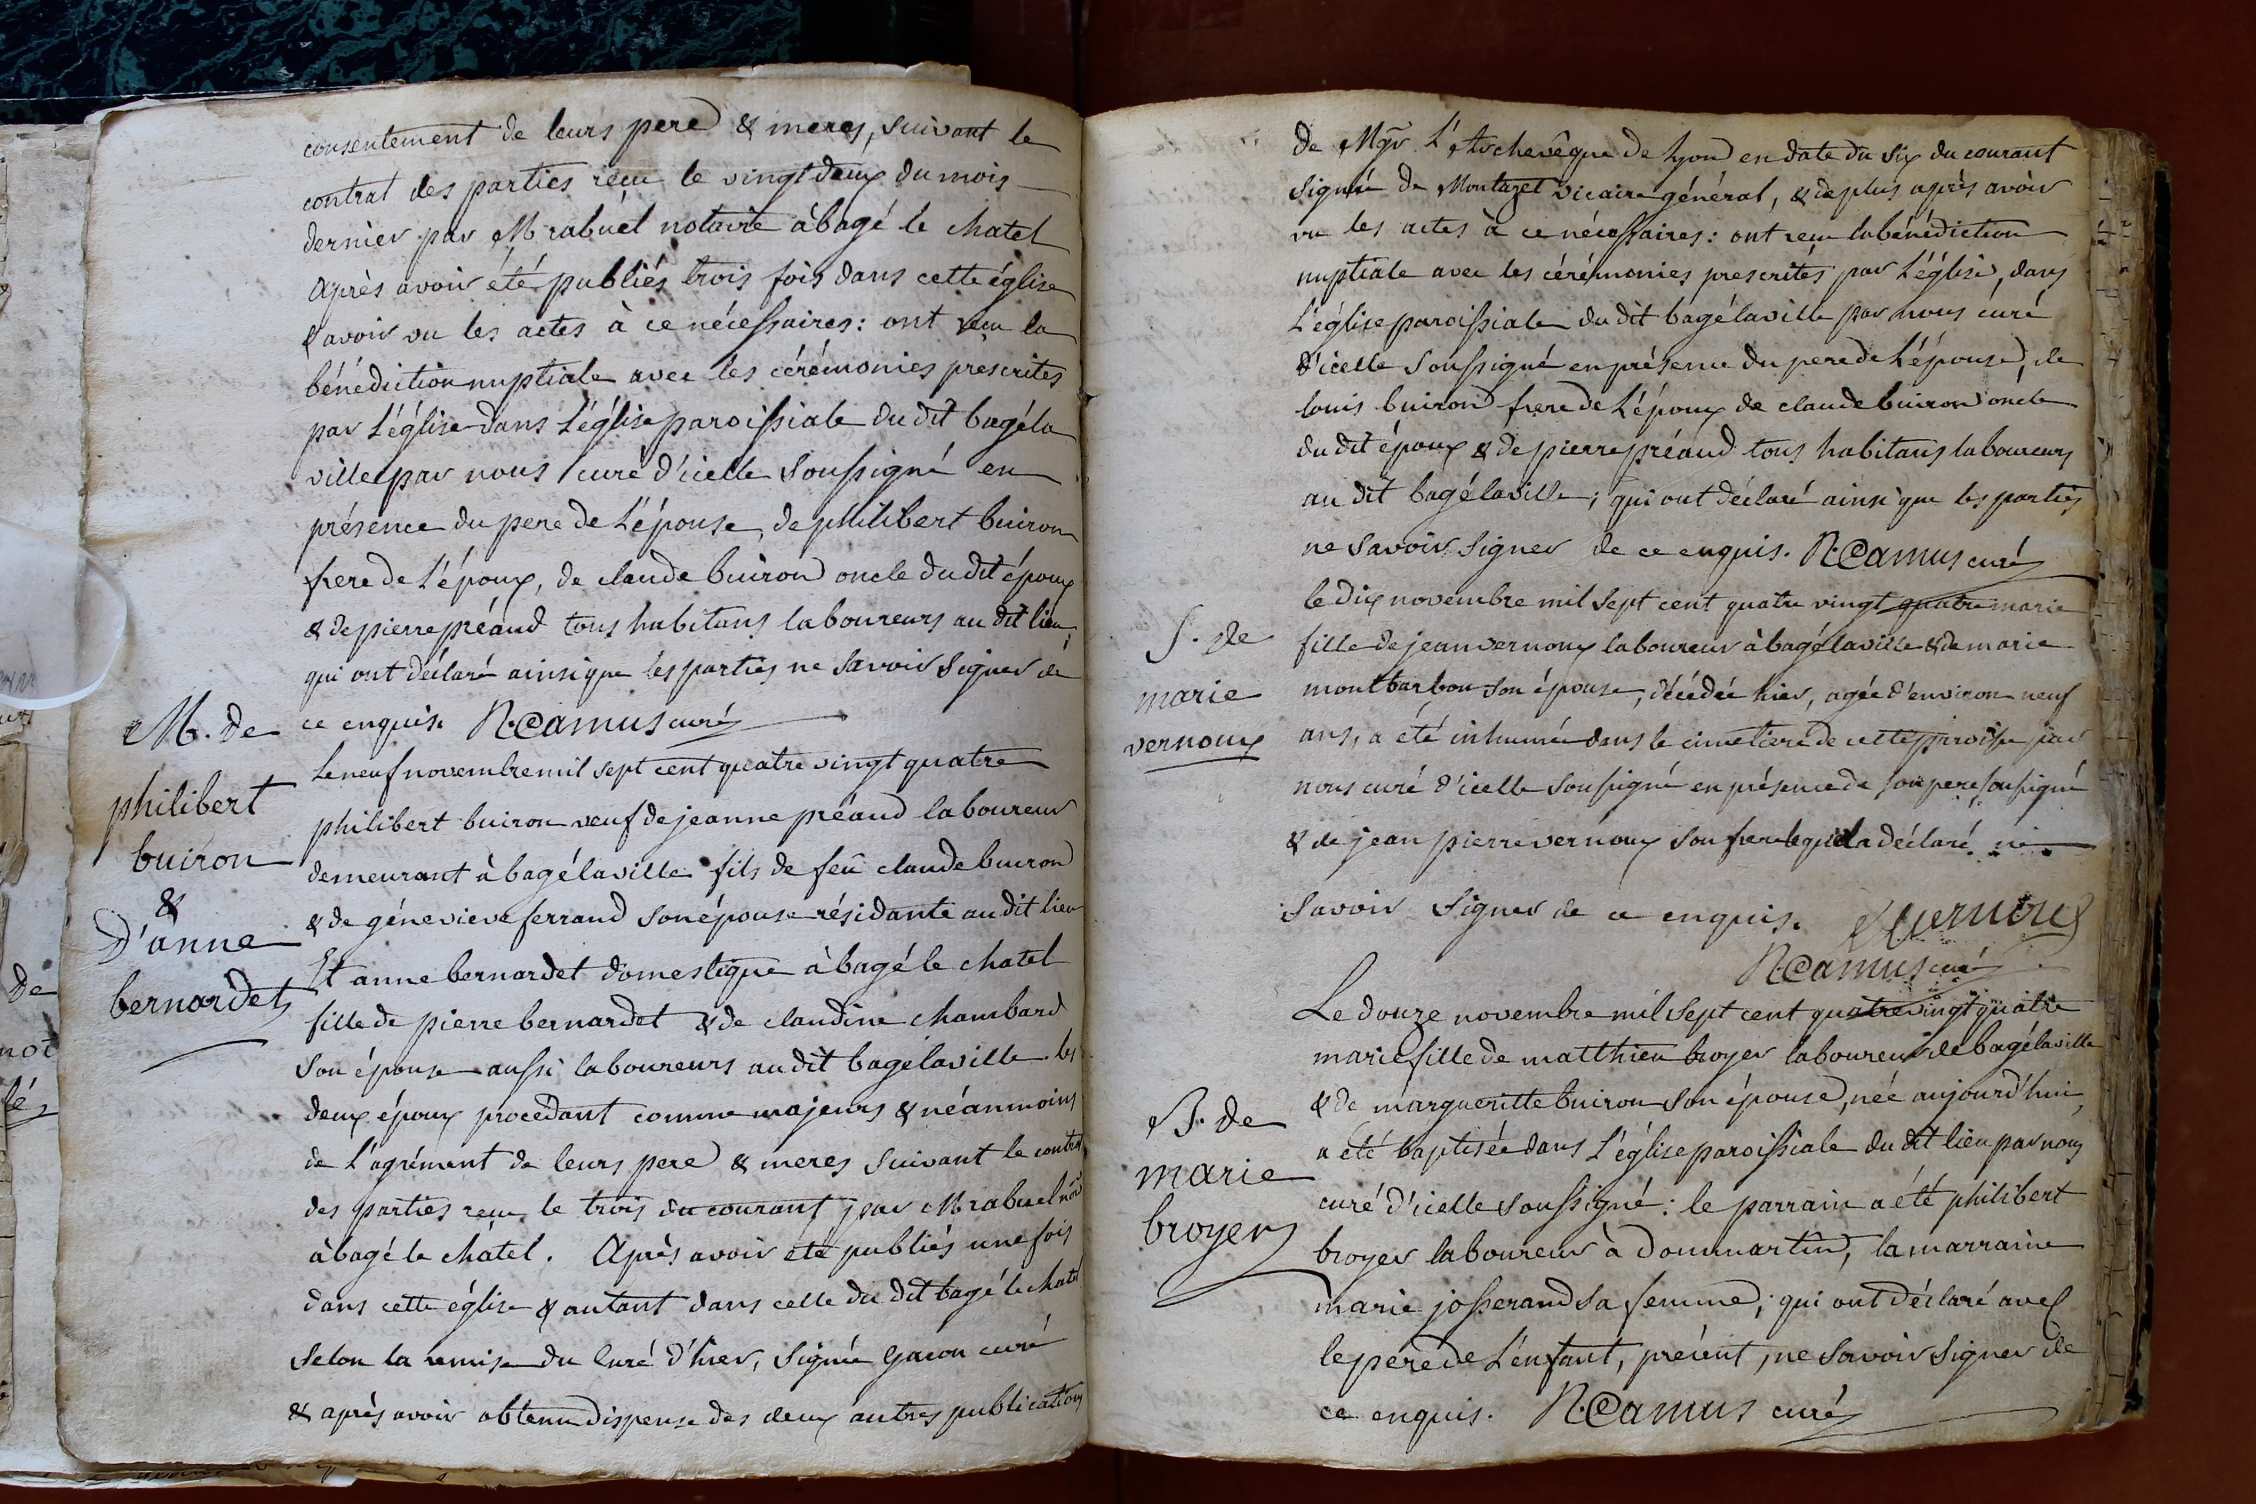 consentement de leurs pere & meres, suivant le
contrat des parties reçu le vingt deux du mois
dernier par Mr rabuel notaire à bagé le chatel
Après avoir été publiés trois fois dans cette église
& avoir vu les actes à ce nécessaires: ont reçu la
bénédiction nuptiale avec les cérémonies prescrites
par l'église dans l'église paroissiale du dit bagé la
ville par nous curé d'icelle soussigné en
présence du pere de l'épouse, de philibert buiron
frere de l'époux, de claude buiron oncle du dit époux
& de pierre préaud tous habitans laboureurs au dit lieu,
qui ont déclaré ainsi que les parties ne savoir signer de
ce enquis. N. Camus curé
M. de
philibert
buiron
&
D'anne
bernardet
Le neuf novembre mil sept cent quatre vingt quatre
philibert buiron veuf de jeanne préaud laboureur
demeurant à bagé la ville fils de feu claude buiron
& de génevieve ferrand son épouse résidante au dit lieu
Et anne bernardet domestique à bagé le chatel
fille de pierre bernardet & de claudine chambard
son épouse aussi laboureurs au dit bagé la ville les
deux époux procedant comme majeurs & néanmoins
de l'agrément de leurs pere & meres suivant le contrat
des parties reçu le trois du courant par Mr rabuel nore
à bagé le châtel. Après avoir eté publiés une fois
dans cette église & autant dans celle du dit bagé le chatel
selon la remise du curé d'hier, signée gacon curé
& après avoir obtenu dispense des deux autres publications
de Mgr l'Archevêque de Lyon en date du six du courant
signée de Montazet vicaire général, & de plus après avoir
vu les actes à ce nécessaires: ont reçu la bénédiction
nuptiale avec les cérémonies prescrites par l'église, dans
l'église paroissiale du dit bagé la ville par nous curé
d'icelle soussigné en présence du pere de l'épouse, de
louis buiron frere de l'époux de claude buiron oncle
du dit époux & de pierre préaud tous habitans laboureurs
au dit bagé la ville; qui ont déclaré ainsi que les parties
ne savoir signer de ce enquis. N. Camus curé
S. de
marie
vernoux
le dix novembre mil sept cent quatre vingt quatre marie
fille de jean vernoux laboureur à bagé la ville & de marie
montbarbon son épouse, décédée hier, agée d'environ neuf
ans, a été inhumée dans le cimetiere de cette paroisse par
nous curé d'icelle soussigné en présence de son pere soussigné
& de jean pierre vernoux son frere lequel a déclaré ne
savoir signer de ce enquis. J vernoux
N. Camus curé
B. de
marie
broyer
Le douze novembre mil sept cent quatre vingt quatre
marie fille de matthieu broyer laboureur de bagé la ville
& de margueritte buiron son épouse, née aujourd'hui,
a été baptisée dans l'église paroissiale du dit lieu par nous
curé d'icelle soussigné: le parrain a été philibert
broyer laboureur à dommartin, la marraine
marie josserand sa femme; qui ont déclaré avec
le pere de l'enfant, présent, ne savoir signer de
ce enquis. N. Camus curé